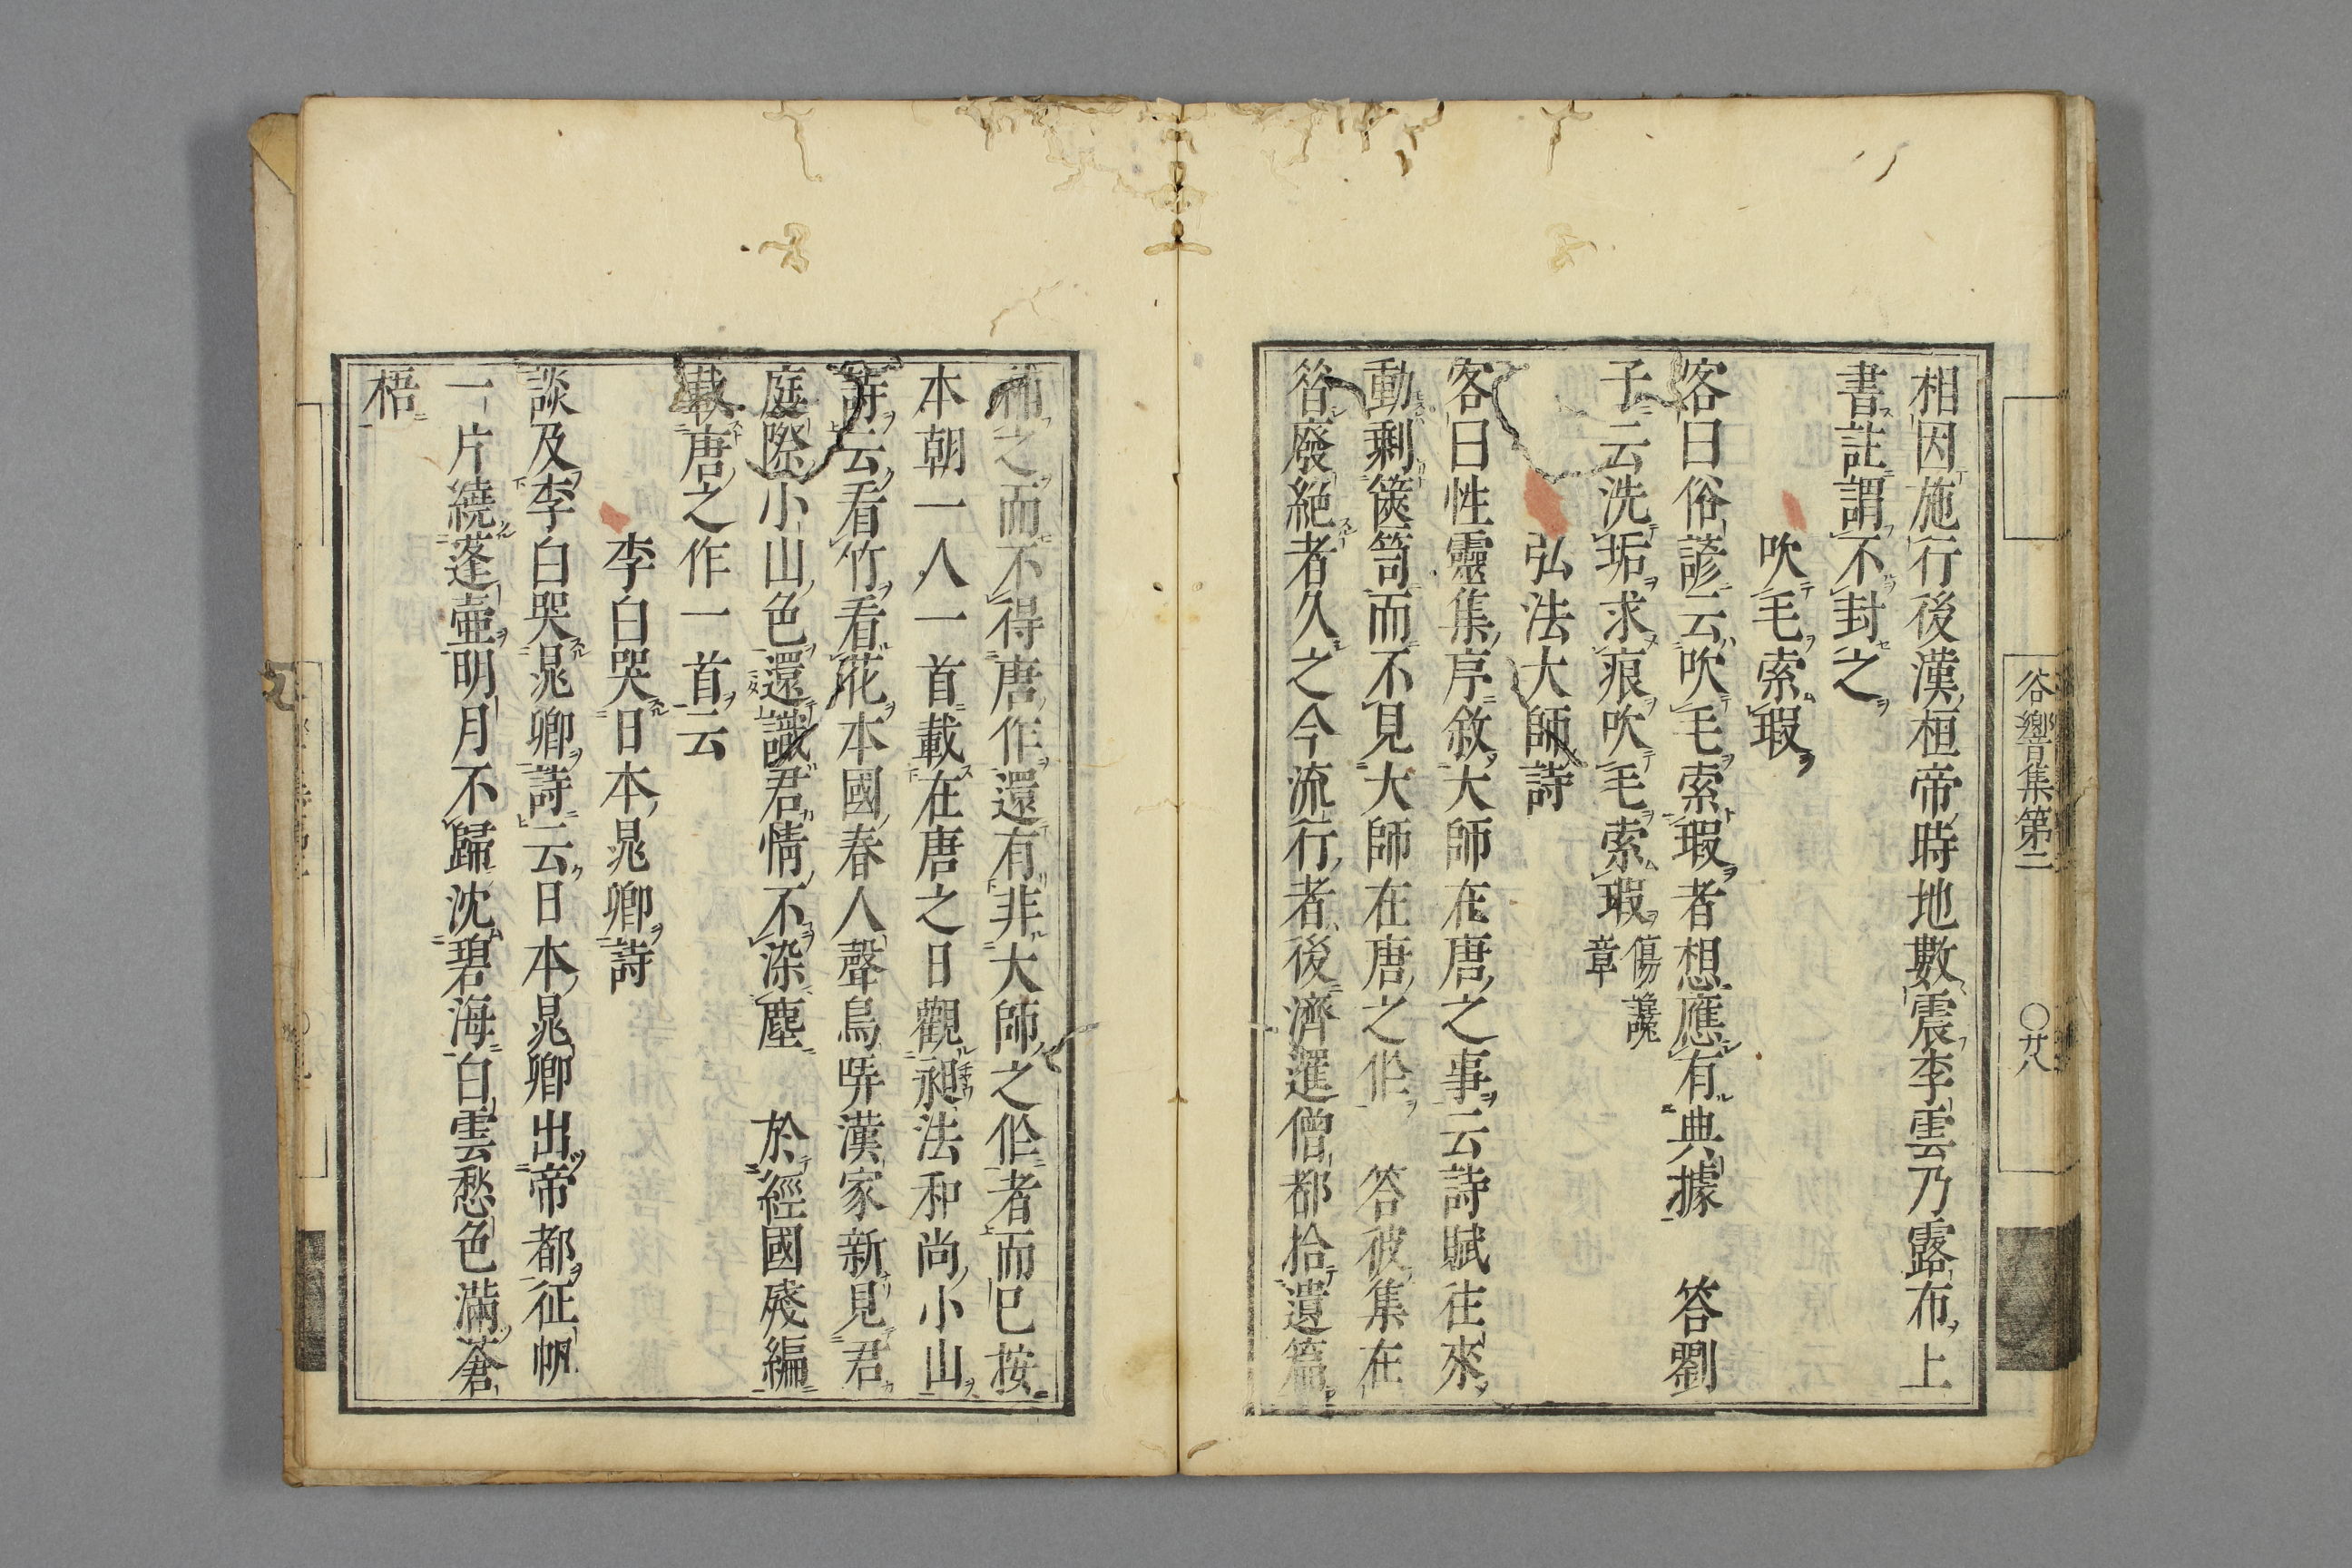 相因施行後漢桓帝時地數震李雲乃露布上
書註謂不封之
吹毛索瑕
客曰俗諺云吹毛索瑕者想應有典據　答劉
子云洗垢求痕吹毛索瑕傷讒章
弘法大師詩
客曰性靈集序敘大師在唐之事云詩賦往來
動剩篋笥而不見大師在唐之作　答彼集在
昝廢絕者久之今流行者後濟暹僧都拾遺篇
補之而不得唐作還有非大師之作者而已按
本朝一人一首載在唐之日觀昶法和尚小山
詩云看竹看花本國春人聲鳥哢漢家新見君
庭際小山色還識君情不染塵　於經國殘編
載唐之作一首云
李白哭日本晁卿詩
談及李白哭晁卿詩云日本晁卿出帝都征帆
一片繞蓬壺明月不歸沈碧海白雲愁色滿蒼
梧
谷響集第二
〇廿八